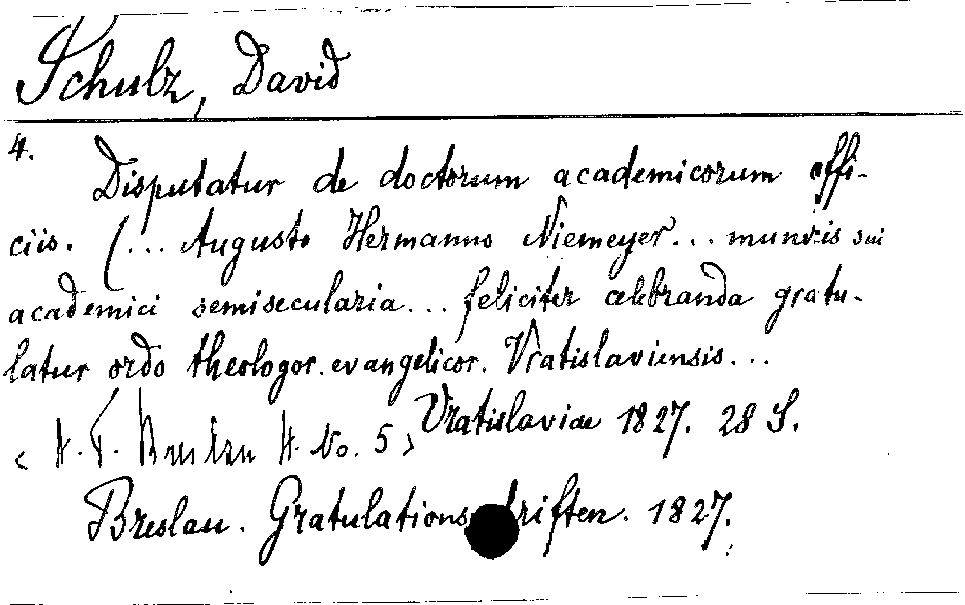 Schulz, David
4.
Disputatur de doctorum academicorum offi-
ciis. (... Augusto Hermanno Niemeyer... muneris sui
academici semisecularia... feliciter celebranda gratu-
latur ordo theologor. evangelicor. Vratislaviensis...
Vratislaviae 1827. 28 S.
< A. T. No. 5 >
Breslau. Gratulationsschriften. 1827.